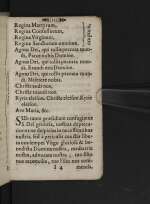 Regina Martyrum,
Regina Confessorum,
Regina Virginum,
Regina Sanctorum omnium,
Agnus Dei, qui tollis peccata mun-
di, Parce nobis Domine.
Agnus Dei, qui tollis peccata mun-
di, Exaudi nos Domine.
Agnus Dei, qui tollis peccata mun-
di, Miserere nobis.
Christe audi nos,
Christe exaudi nos.
Kyrie eleison. Christe eleison. Kyrie
eleison.
Ave Maria, &c.
SUb tuum præsidium confugimus
S. Dei genitrix, nostras depreca-
tiones ne despicias in necessitatibus
nostris, sed à periculis cunctis libe-
ra nos semper Virgo gloriosa & be-
nedicta Domina nostra, mediatrix
nostra, advocata nostra, tuo
nos
I 4